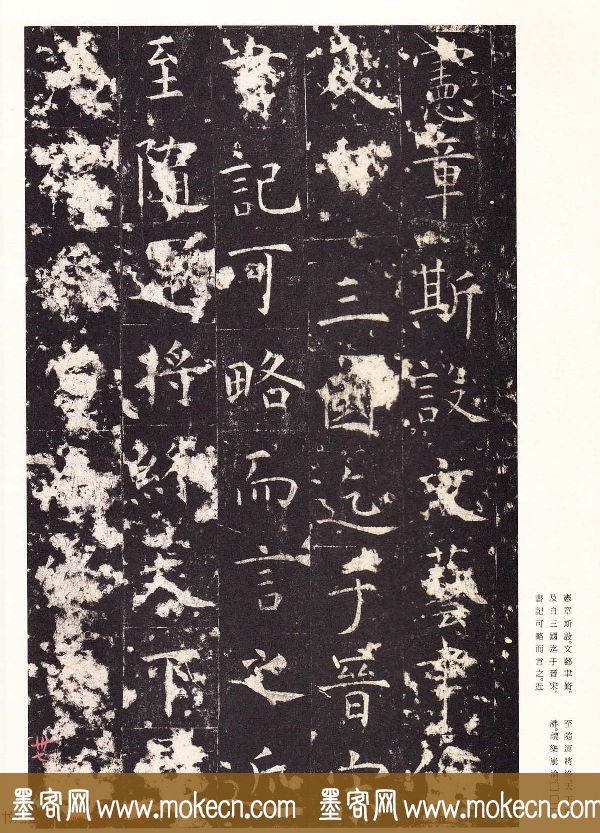 憲章斯設文藝聿脩
及自三國迄于晉宋
書記可略而言之近
至隨運將終天下
沸禮皇
憲章斯設。文藝聿脩。
及自三國迄于晉宋。
書記可略而言之。近
至隨運將終天
沸。禮樂崩淪
墨客网 www.mokecn.com 墨客网 www.mokecn.com